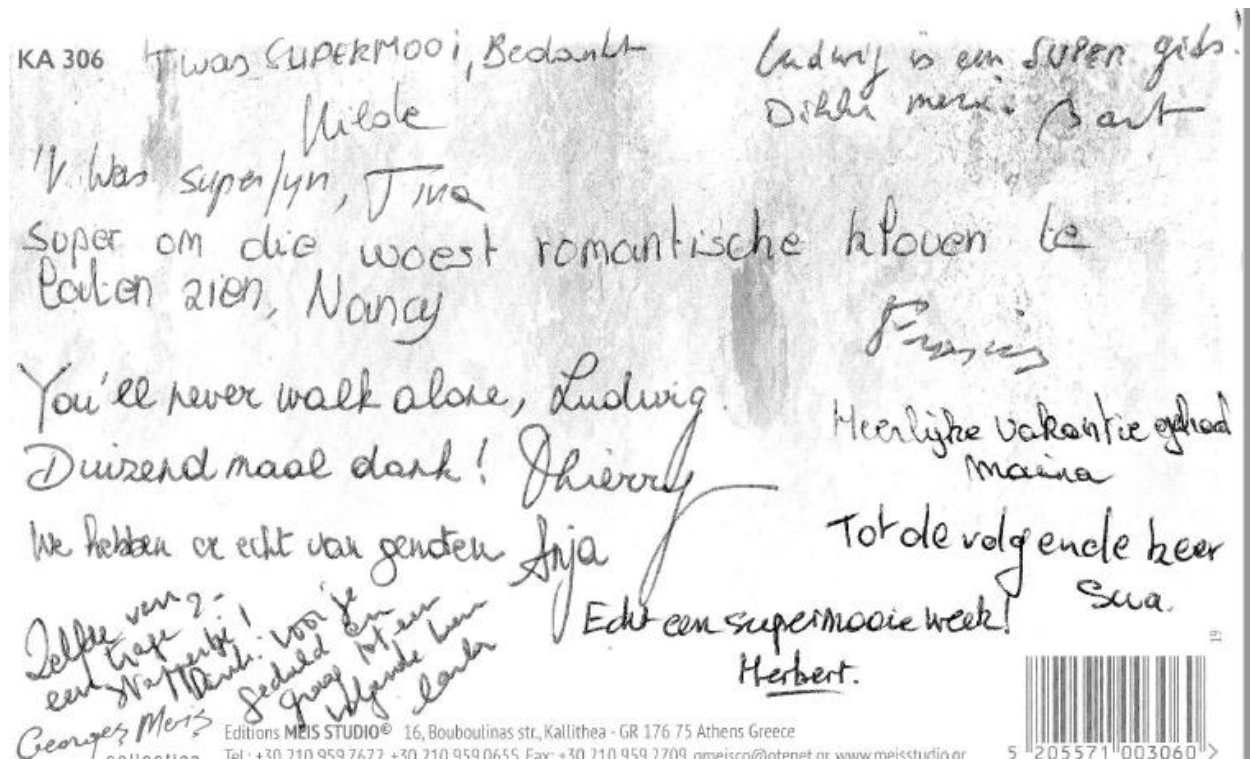 KA 306
T was SUPERMOOi, Bedankt
Hilde
Ludwig is een SUPER gids!
Dikke merci. Bart
'T Was superfijn, Tina
Super om die woest romantische kloven te
laten zien, Nancy
Francis
You'll never walk alone, Ludwig
Duizend maal dank! Thierry
Heerlijke vakantie gehad
We hebben er echt van genoten Anja
Tot de volgende keer
Echt een supermooie week!
Herbert.
Zelfde van
een trage
Dank voor je
geduld en
graag tot een
volgende keer
Georges Meis
collection
Editions MEIS STUDIO© 16, Bouboulinas str., Kallithea - GR 176 75 Athens Greece
Tel.: +30 210 959 7677, +30 210 959 0655, Fax: +30 210 959 2709, gmeisco@otenet.gr, www.meisstudio.gr
19
5 205571 003060 >